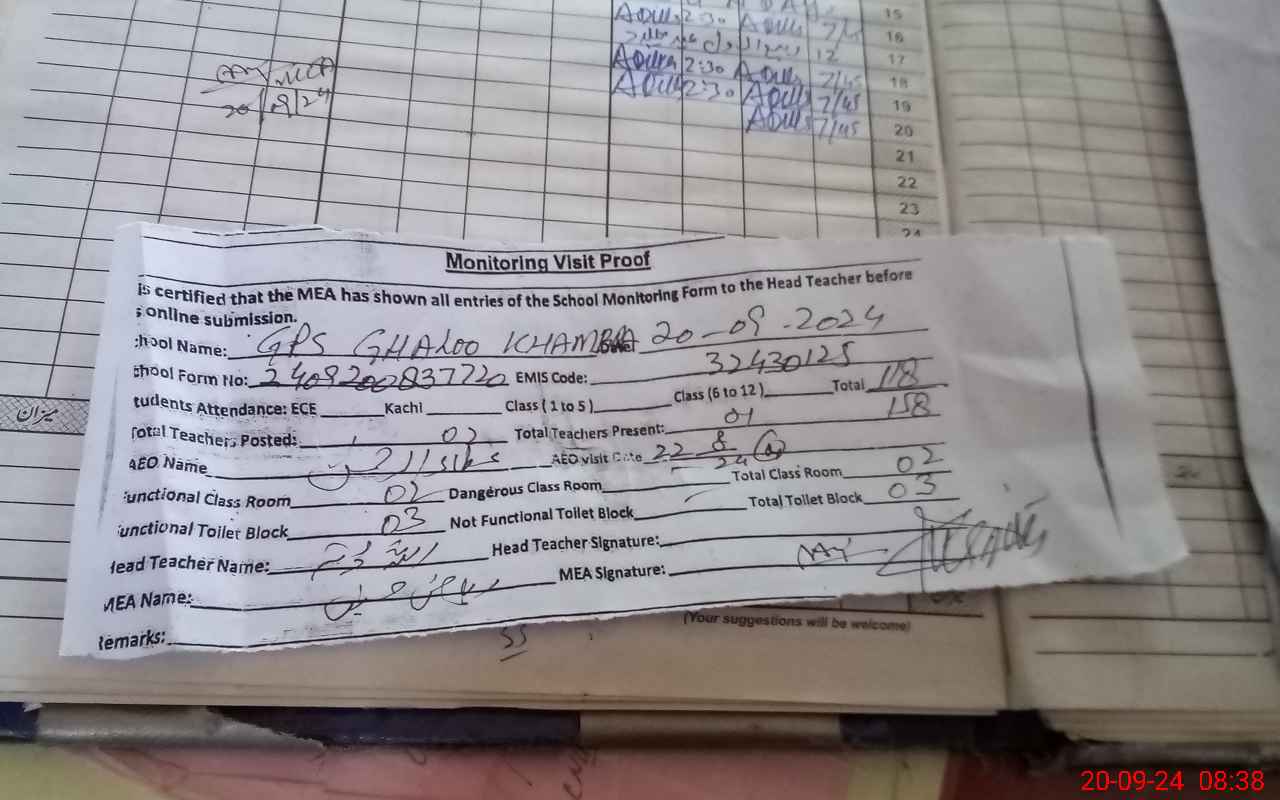 15
ADULS 2:30 ADULS 7/45 16
12 17
ADULS 2:30 ADULS 7/45 18
ADULS 2:30 ADULS 7/45 19
ADULS 7/45 20
21
22
23
24
MEA
20/9/24
میزان
Monitoring Visit Proof
is certified that the MEA has shown all entries of the School Monitoring Form to the Head Teacher before
s online submission.
chool Name: GPS GHALOO KHAMBRA 20-09-2024
chool Form No: 2409200837720 EMIS Code: 32430125
tudents Attendance: ECE Kachi Class (1 to 5) Class (6 to 12) Total 118
158
Total Teachers Posted: 02 Total Teachers Present: 01
AEO Name AEO visit Date 22 8 24
unctional Class Room 02 Dangerous Class Room Total Class Room 02
unctional Toilet Block 03 Not Functional Toilet Block Total Toilet Block 03
Head Teacher Name: Head Teacher Signature:
MEA Name: MEA Signature:
Remarks:
(Your suggestions will be welcome)
20-09-24 08:38